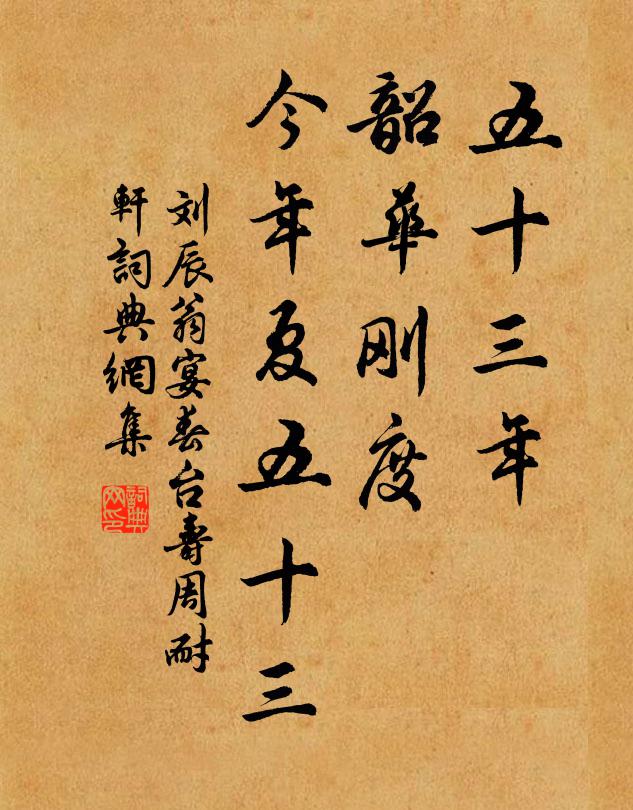 五十三年
韶華刚度
今年夏五十三
刘辰翁宴春台壽周耐
軒詞典網集
詞典网印